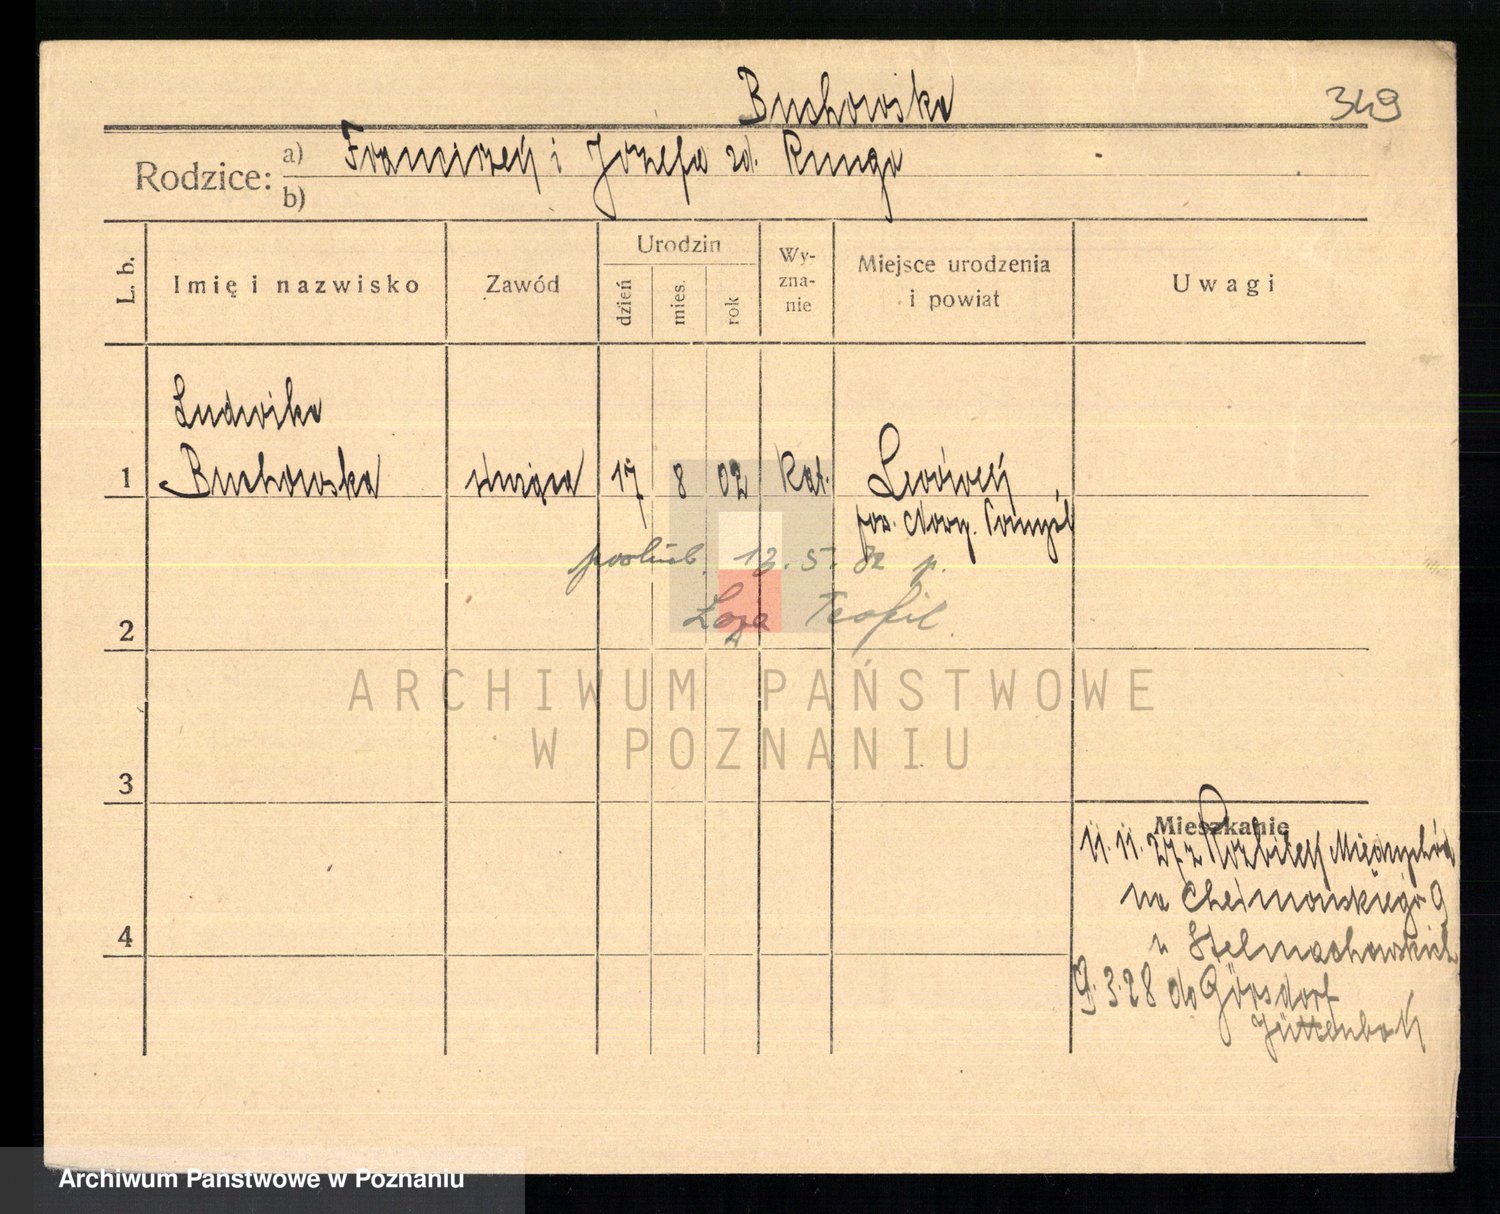 Buchowska
349
Rodzice:
a) Franciszek i Józefa zd. Runga
b)
L. b.
Imię i nazwisko
Zawód
Urodzin
dzień
mies.
rok
Wy-
zna-
nie
Miejsce urodzenia
i powiat
Uwagi
Ludwika
1 Buchowska służąca 17 8 02 Kat. Lwówek
pow. Nowy. Tomyśl
poślub. 12. 5. 32 p.
Łoza Teofil
2
ARCHIWUM PAŃSTWOWE
W POZNANIU
3
Mieszkanie
11. 11. 27 z Rozbitek Międzychód
na Chełmońskiego 9
u Stelmachowskich
4
9. 3. 28 do Görsdorf
Jüttenbock
Archiwum Państwowe w Poznaniu